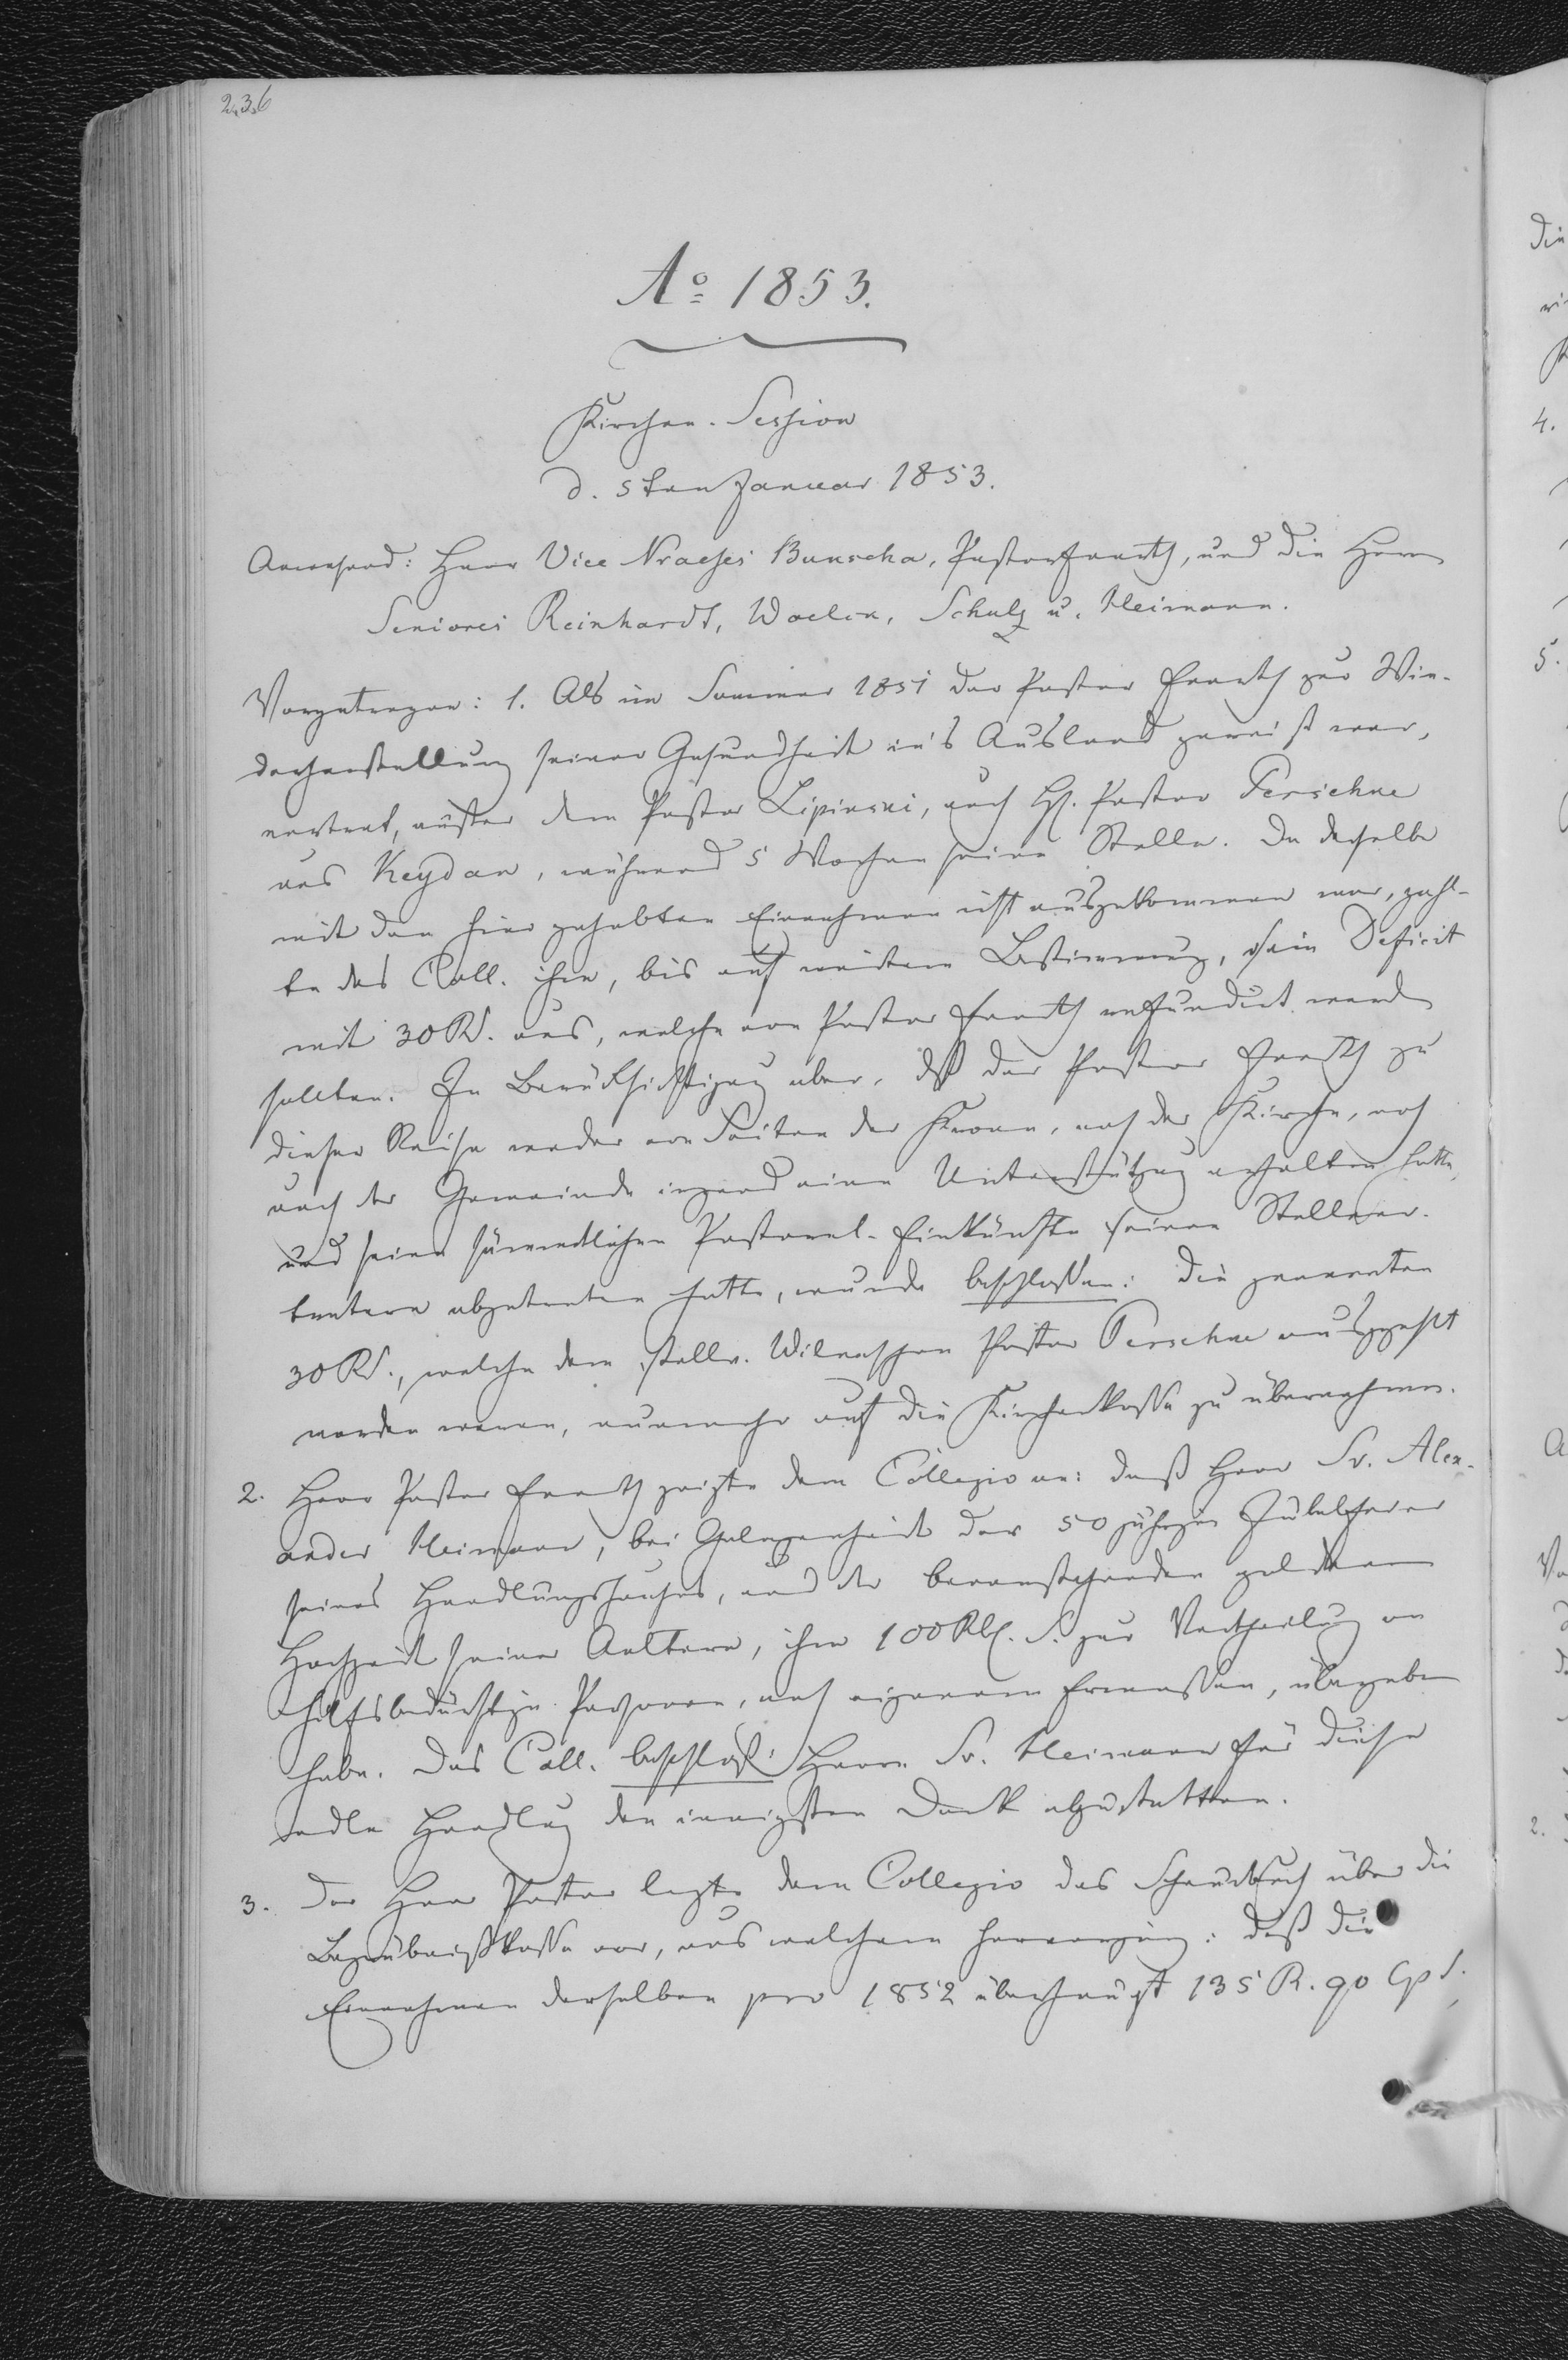 236
Ao 1853.
Kirchen-Session
d. 5ten Januar 1853.
Anwesend: Herr Vice Praeses Bunscha, Pastor Everth, und die Herrn
Seniores Reinhardt, Woelck, Schulz u. Heimann.
Vorgetragen: 1. Als im Sommer 1851 der Pastor Everth zur Wie-
derherstellung seiner Gesundheit in's Ausland gereist war,
vertrat, außer dem Pastor Lipinski, auch H. Pastor Perschke
aus Keydan, während 5 Wochen seine Stelle. Da derselbe
mit den hier gehabten Einnahmen nicht ausgekommen war, zahl-
te das Coll. ihm, bis auf weitere Bestimmung, sein Deficit
mit 30 RS. aus, welche von Pastor Everth refundirt werden
sollten. In Berücksichtigung aber, daß der Pastor Everth zu
dieser Reise weder von Seiten der Krone, noch der Kirche, noch
auch der Gemeinde irgend eine Unterstützung erhalten hatte,
und seine sämmtlichen Pastoral-Einkünfte seinen Stellver-
tretern abgetreten hatte, wurde beschlossen: die genannten
30 RS., welche dem stellv. Wilnaschen Pastor Perschke ausgezahlt
worden waren, nunmehr auf die Kirchenkasse zu übernehmen.
2. Herr Pastor Everth zeigte dem Collegio an: daß Herr Sr. Alex-
ander Heimann, bei Gelegenheit der 50 jährigen Jubelfeier
seines Handlungshauses, und der bevorstehenden goldenen
Hochzeit seiner Aeltern, ihm 100 Rbl. S. zur Vertheilung an
hilfsbedürftige Personen, nach eigenem Ermessen, übergeben
habe. Das Coll. beschloß: Herrn Sr. Heimann für diese
edle Handlung den innigsten Dank abzustatten.
3. Der Herr Pastor legte dem Collegio das Schnurbuch über die
Begräbnißkasse vor, aus welchem hervorging: daß die
Einnahmen derselben pro 1852 überhaupt 135 R. 90 Cp S.